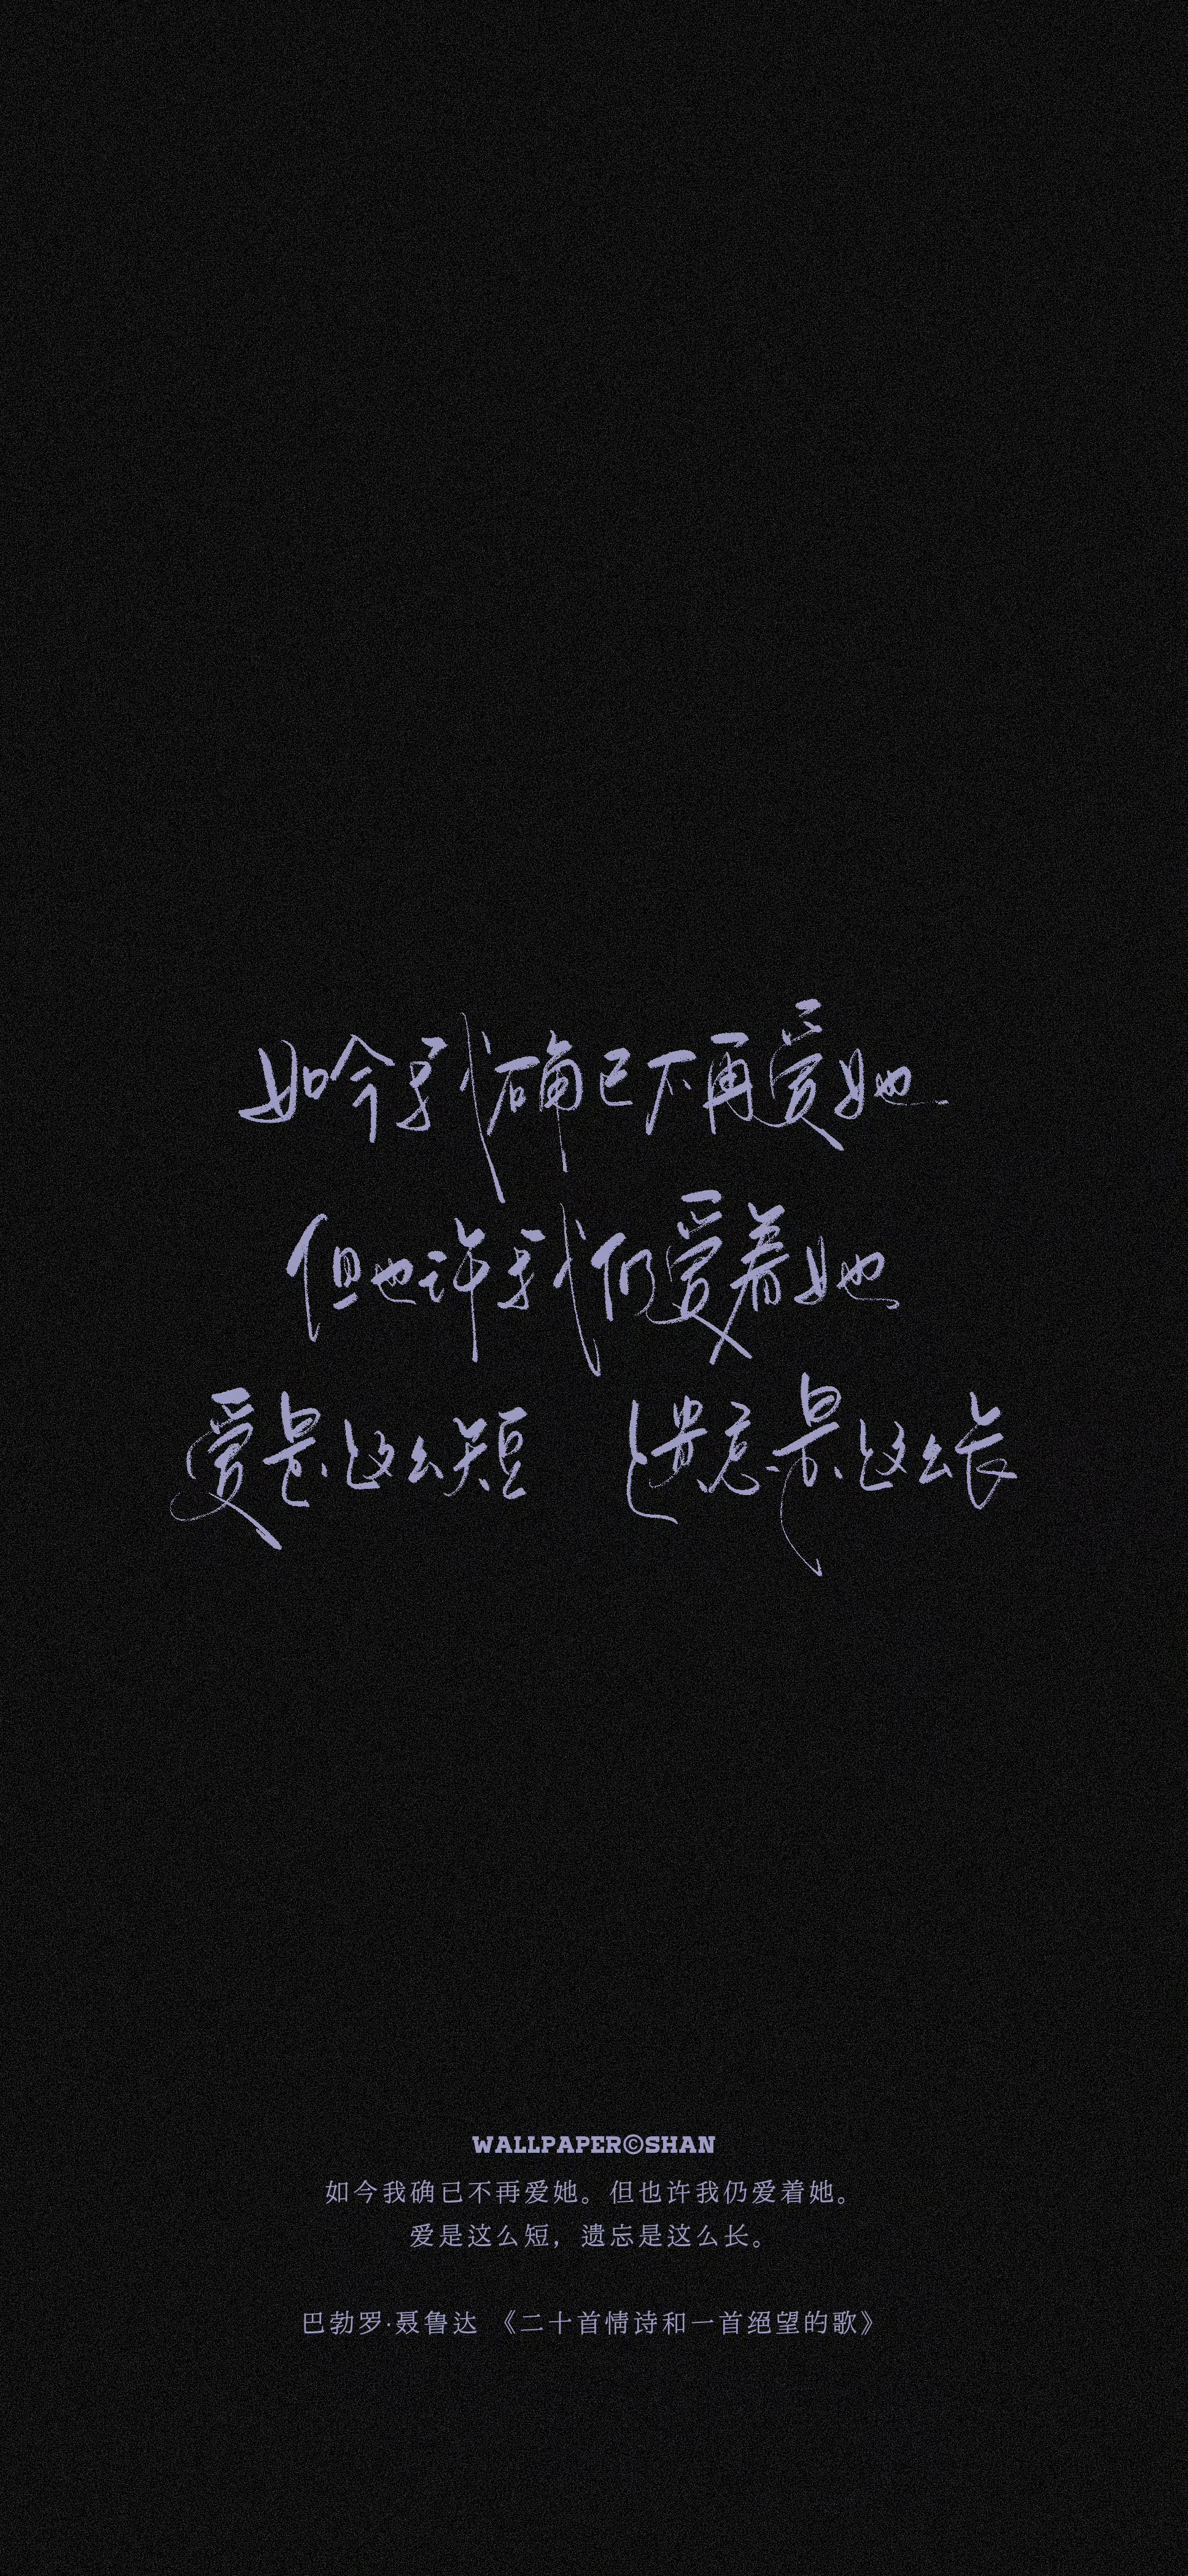 如今我确已不再爱她
但也许我仍爱着她
爱是这么短 遗忘是这么长
WALLPAPER©SHAN
如今我确已不再爱她。但也许我仍爱着她。
爱是这么短，遗忘是这么长。
巴勃罗·聂鲁达 《二十首情诗和一首绝望的歌》